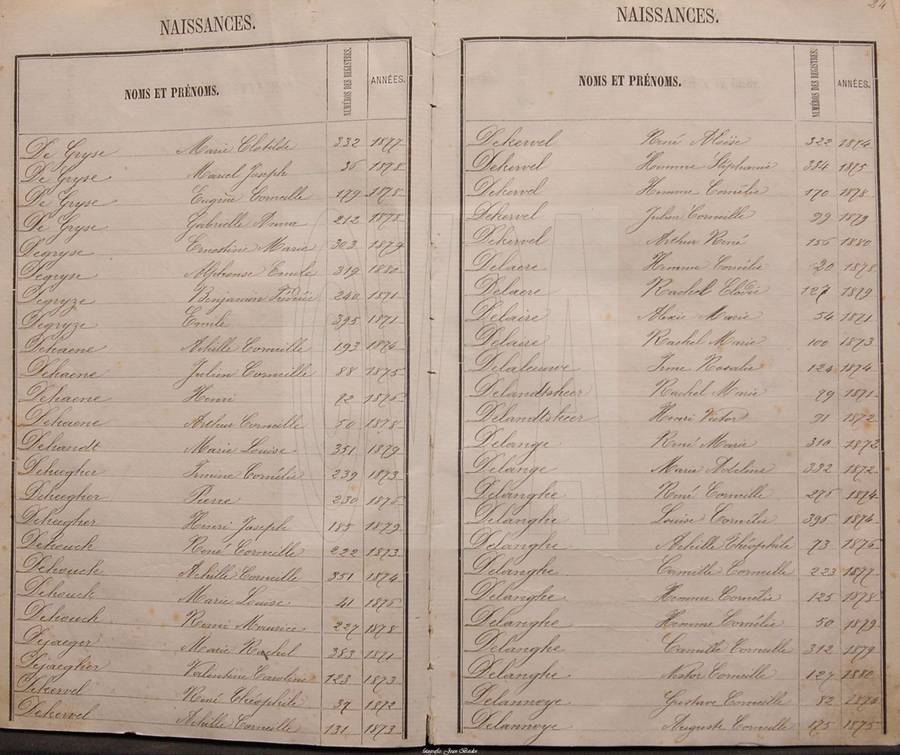 NAISSANCES.
NOMS ET PRÉNOMS. NUMÉROS DES REGISTRES. ANNÉES.
De Gryse Marie Clotilde 332 1877
De Gryse Marcel Joseph 36 1878
De Gryse Eugène Corneille 179 1878
De Gryse Gabrielle Anna 212 1878
Degryse Ernestine Marie 303 1879
Degryse Alphonse Emile 319 1880
Degryze Benjamin 240 1871
Degryze Emile 395 1871
Dehaene Achille Corneille 193 1874
Dehaene Julien Corneille 88 1875
Dehaene Henri 92 1876
Dehaene Arthur Corneille 50 1878
Dehandt Marie Louise 351 1879
Deheegher Irmine Cornélie 239 1873
Deheegher Pierre 230 1876
Deheegher Henri Joseph 185 1879
Dehouck René Corneille 222 1873
Dehouck Achille Corneille 351 1874
Dehouck Marie Louise 41 1876
Dehouck Remi Maurice 227 1878
Dejaeger Marie Rachel 383 1871
Dejaegher Valentine Caroline 123 1873
Dekervel René Théophile 37 1872
Dekervel Achille Corneille 131 1873
24
NAISSANCES.
NOMS ET PRÉNOMS. NUMÉROS DES REGISTRES. ANNÉES.
Dekervel René Aloïse 322 1874
Dekervel Hemme Stéphanie 334 1875
Dekervel Hemme Cornélie 170 1878
Dekervel Julien Corneille 99 1879
Dekervel Arthur René 156 1880
Delaere Hemme Cornélie 20 1878
Delaere Rachel Elodie 127 1879
Delaere Alexie Marie 54 1871
Delaere Rachel Marie 100 1873
Delaleeuwe Irme Rosalie 124 1874
Delandtsheer Rachel Marie 79 1871
Delandtsheer Henri Victor 91 1872
Delange René Marie 310 1872
Delange Marie Adeline 332 1872
Delanghe René Corneille 276 1874
Delanghe Louise Cornélie 396 1874
Delanghe Achille Théophile 73 1876
Delanghe Camille Corneille 223 1877
Delanghe Hemme Cornélie 125 1878
Delanghe Hemme Cornélie 50 1879
Delanghe Camille Corneille 312 1879
Delanghe Nestor Corneille 127 1880
Delannoye Gustave Corneille 82 1874
Delannoye Auguste Corneille 175 1875